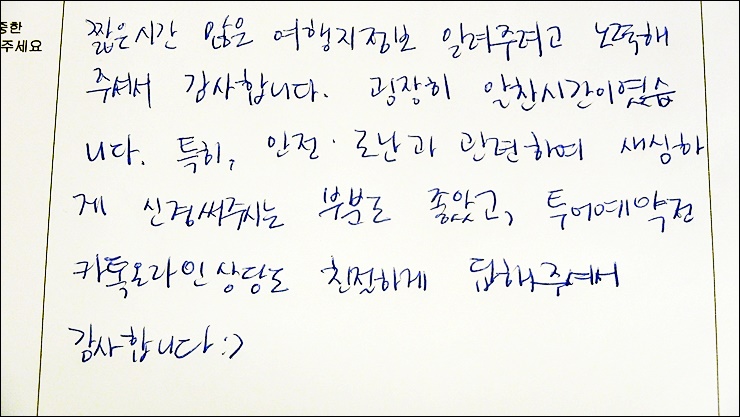 중한
주세요
짧은시간 많은 여행지정보 알려주려고 노력해
주셔서 감사합니다. 굉장히 알찬시간이였습
니다. 특히, 안전·도난과 관련하여 새심하
게 신경써주시는 부분도 좋았고, 투어예약전
카톡온라인상담도 친절하게 답해주셔서
감사합니다:)